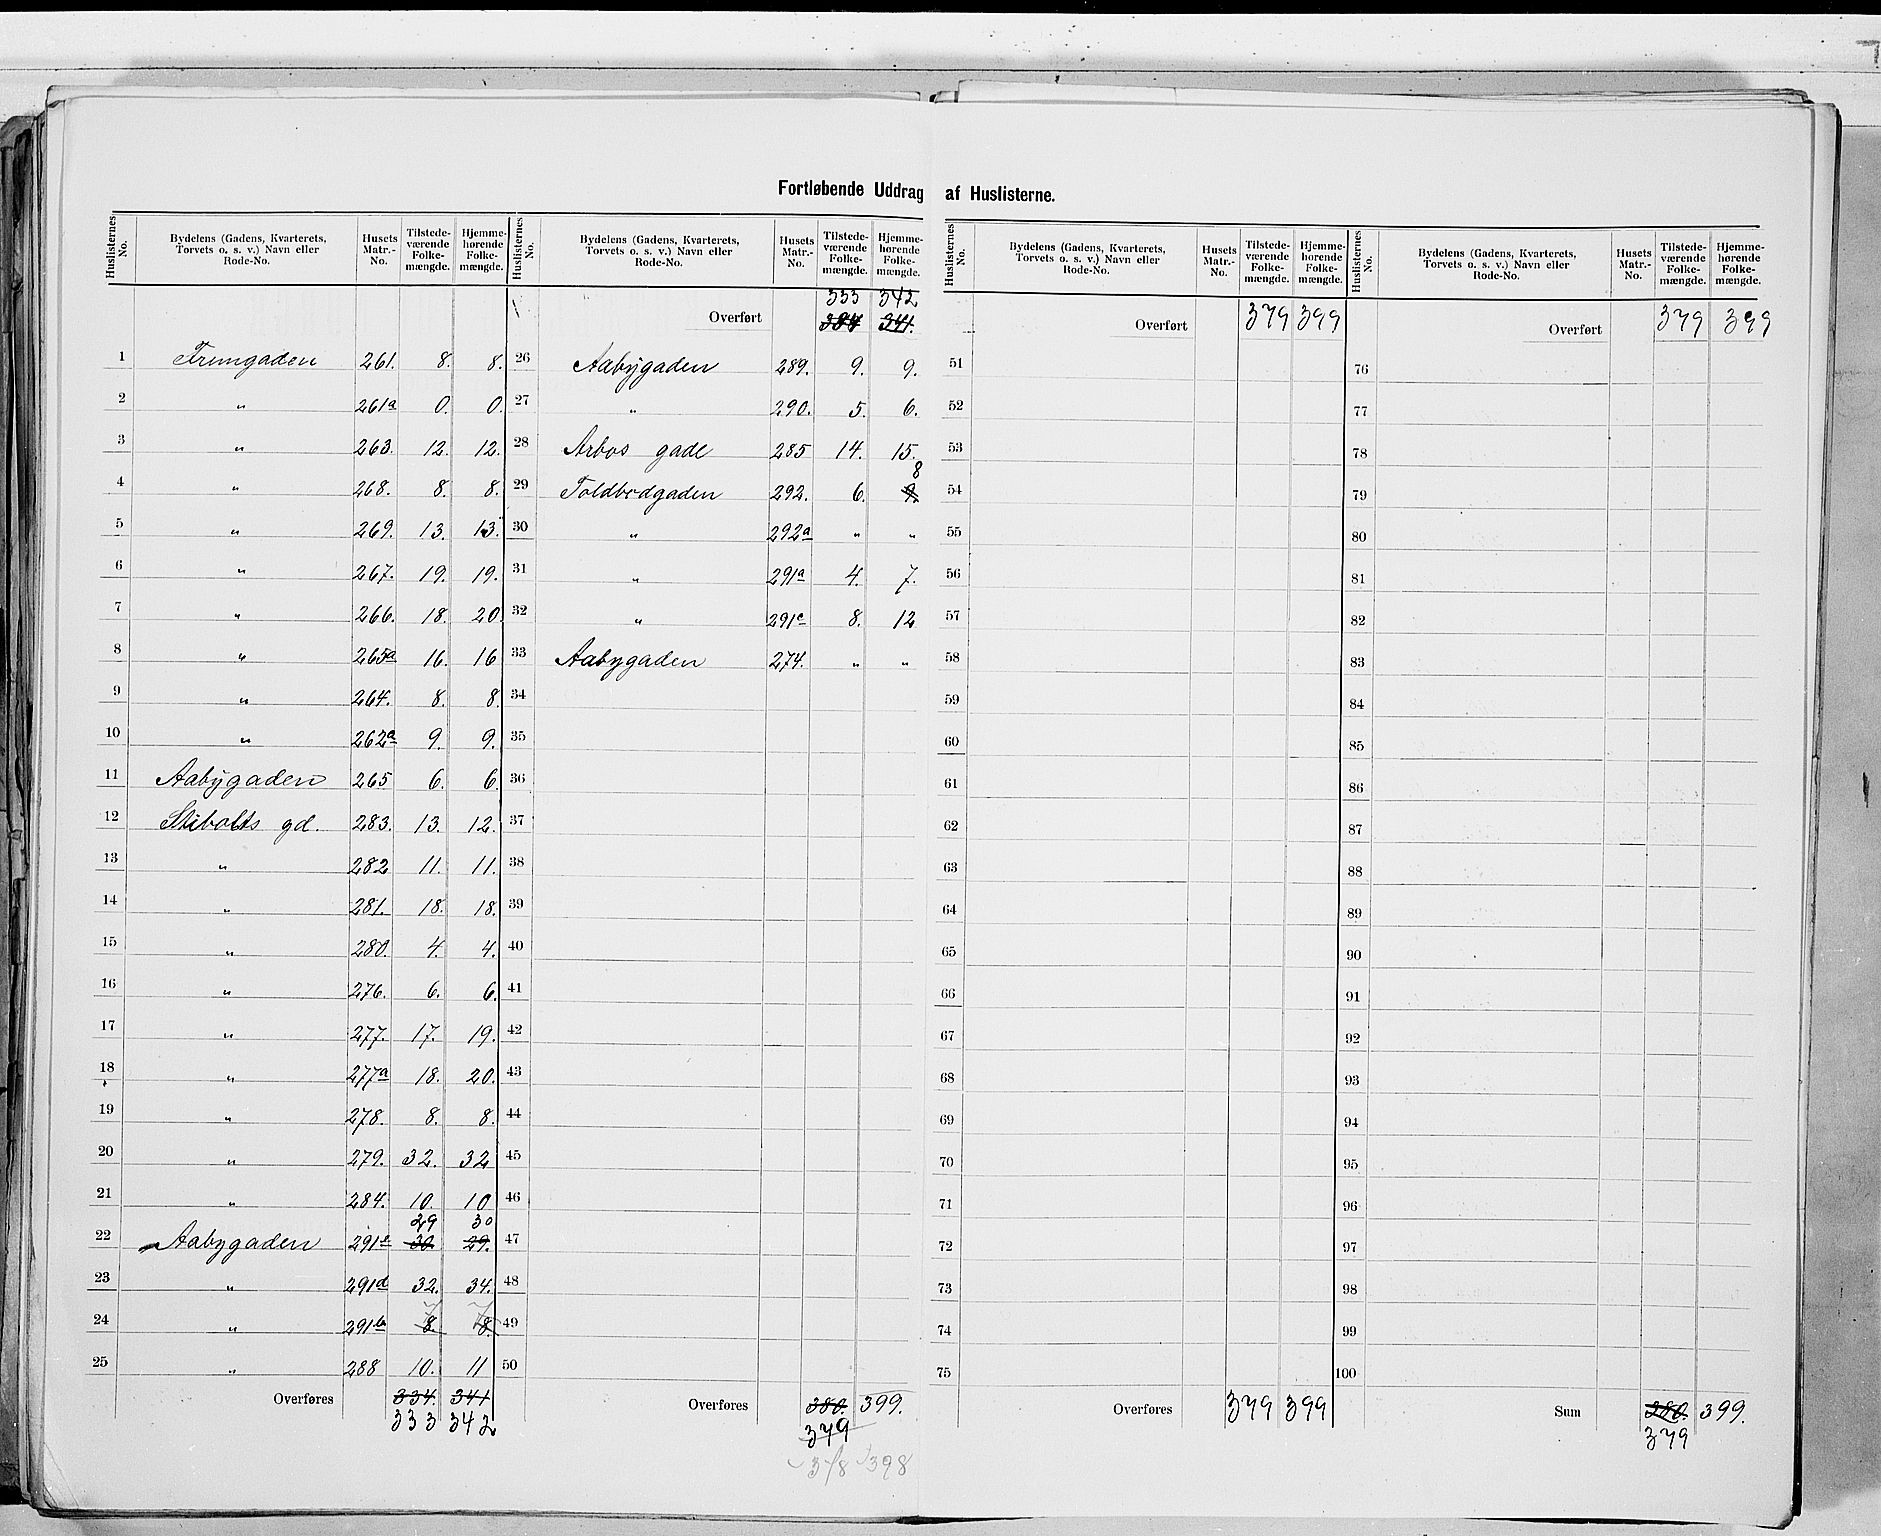 Fortløbende Uddrag af Huslisterne.
Huslisternes No. | Bydelens (Gadens, Kvarterets, Torvets o. s. v.) Navn eller Rode-No. | Husets Matr.-No. | Tilstedeværende Folkemængde. | Hjemmehørende Folkemængde.
1 Trumgaden 261. 8. 8.
2 " 261a 0. 0.
3 " 263. 12. 12.
4 " 268. 8. 8.
5 " 269. 13. 13.
6 " 267. 19. 19.
7 " 266. 18. 20.
8 " 265a 16. 16
9 " 264. 8. 8.
10 " 262a 9. 9.
11 Aabygaden 265 6. 6.
12 Stibolts gd. 283. 13. 12.
13 " 282 11. 11.
14 " 281. 18. 18.
15 " 280. 4. 4.
16 " 276. 6. 6.
17 " 277. 17. 19.
18 " 277a 18. 20.
19 " 278. 8. 8.
20 " 279. 32. 32
21 " 284. 10. 10
29 30
22 Aabygaden 291e 30 29.
23 " 291d 32. 34.
7 7
24 " 291b 8. 8.
25 " 288 10. 11
Overføres 334. 341
333 342
Huslisternes No. | Bydelens (Gadens, Kvarterets, Torvets o. s. v.) Navn eller Rode-No. | Husets Matr.-No. | Tilstedeværende Folkemængde. | Hjemmehørende Folkemængde.
333 342
Overført 334 341.
26 Aabygaden 289. 9. 9.
27 " 290. 5. 6.
28 Arbos gade 285 14. 15.
8
29 Toldbodgaden 292. 6. 9.
30 " 292a " "
31 " 291a 4. 7.
32 " 291c 8. 12
33 Aabygaden 274. " "
34
35
36
37
38
39
40
41
42
43
44
45
46
47
48
49
50
Overføres 380. 399.
379
378 398
Huslisternes No. | Bydelens (Gadens, Kvarterets, Torvets o. s. v.) Navn eller Rode-No. | Husets Matr.-No. | Tilstedeværende Folkemængde. | Hjemmehørende Folkemængde.
Overført 379 399
51
52
53
54
55
56
57
58
59
60
61
62
63
64
65
66
67
68
69
70
71
72
73
74
75
Overføres 379 399
Huslisternes No. | Bydelens (Gadens, Kvarterets, Torvets o. s. v.) Navn eller Rode-No. | Husets Matr.-No. | Tilstedeværende Folkemængde. | Hjemmehørende Folkemængde.
Overført 379 399
76
77
78
79
80
81
82
83
84
85
86
87
88
89
90
91
92
93
94
95
96
97
98
99
100
Sum 380. 399.
379